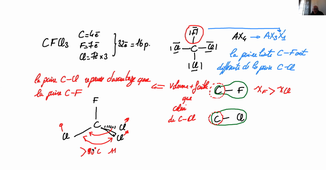 CFCl₃
C=4é
F=7é
Cl=7é×3
} 32é=16p.
|F̅|
|C̅l — C — C̅l|
|C̲l|
AX₄ → AX₃Y₁
la paire liante C-F est
différente de la paire C-Cl
la paire C-Cl repousse davantage que
la paire C-F
⇐ volume + faible
que
celui
de C-Cl
C – F
χF > χCl
C – Cl
F
C
Cl
Cl
Cl